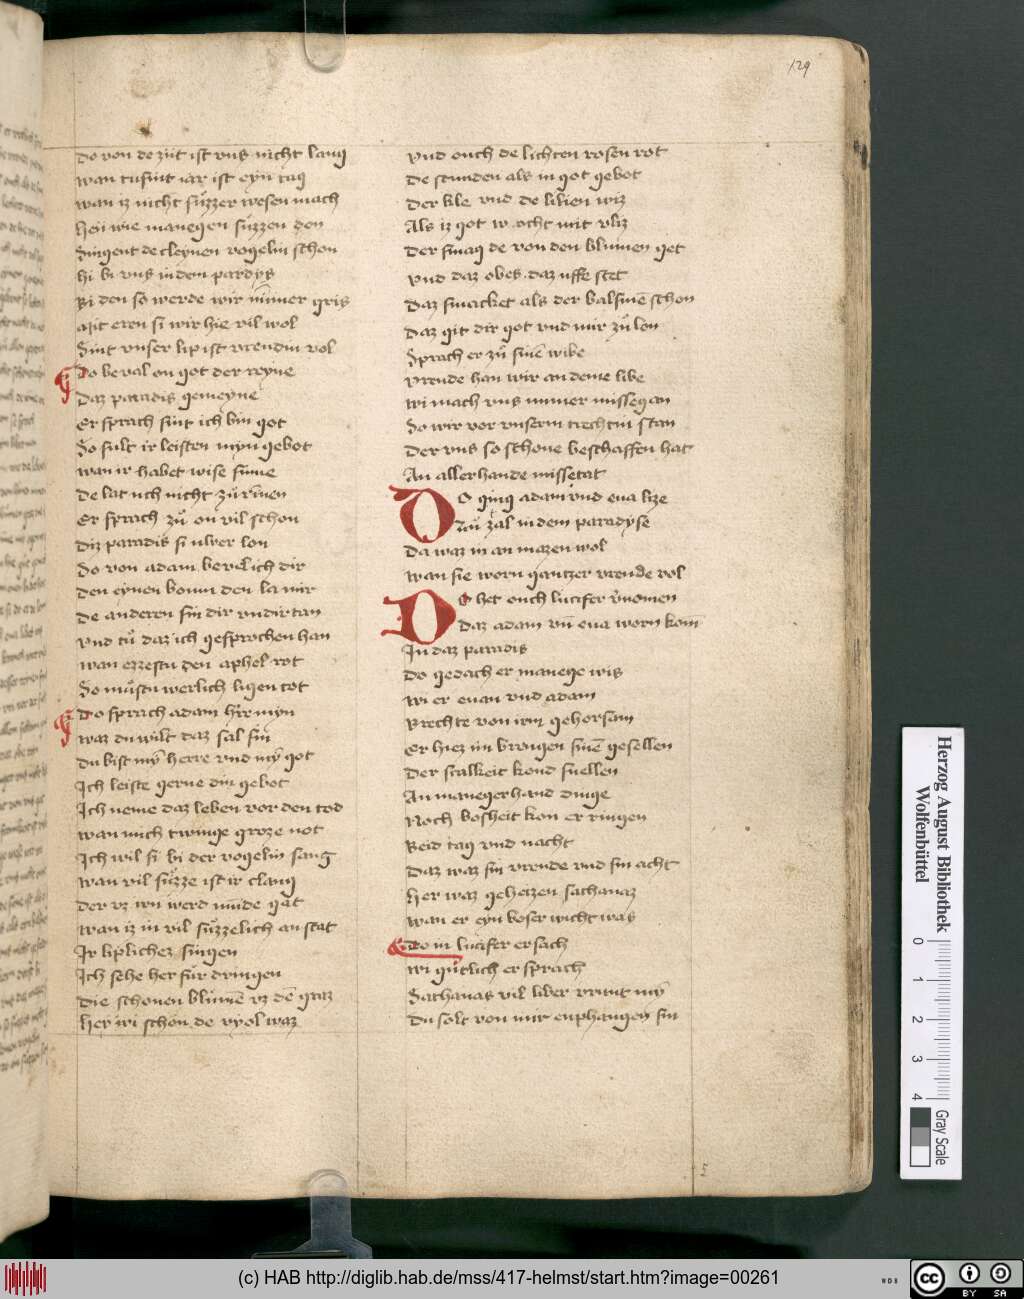 129
Do von de ziit ist uns nicht lang
wan tusint iar ist eyn tag
wan iz nicht sůzzer wesen mach
heii wie manegen sůzzen don
Singent de cleynen vogelin schon
hi bi uns in dem pardys
Bi den so werde wir nimmer gris
Mit eren si wir hie vil wol
Sint unser lip ist vrendin vol
Do beval on got der reyne
Daz paradis gemeyne
Er sprach sint ich bin got
So sult ir leisten myn gebot
wan ir habet wise sinne
De lat uch nicht zů rinen
Er sprach zů on vil schon
Diz paradis si uwer lon
Do von adam bevelich dir
den eynen boum den la mir
De anderen sin dir undirtan
Und tů daz ich gesprochen han
wan ezzestu den aphel rot
So můstu werlich ligen tot
Do sprach adam hirre myn
waz du wilt daz sal sin
Du bist mȳ herre und mȳ got
Ich leiste gerne din gebot
Ich neme daz leben vor den tod
wan mich twinge groze not
Ich wil si bi der vogelin sang
wan vil sůzze ist ir clang
Der uz irn werd munde gat
wan iz in vil sůzzelich an stat
Ir liplichez singen
Ich sehe her fur dringen
Die schonen blumē uz dē graz
her wi schon de vyol waz
Und ouch de lichten rosen rot
De stunden als in got gebot
Der kle und de lilien wiz
Als iz got w ocht mit vliz
Der smag de von den blumen get
Und daz obes daz uffe stet
Daz smacket als der balsmē schon
Daz git dir got und mir zů lon
Sprach er zů sinē wibe
vrende han wir an deme libe
wi mach uns immer missegan
So wir vor unserm trechtin stan
Der uns so schone beschaffen hat
An allerhande missetat
DO ging adam und eua lize
Zu zal in dem paradyse
Da waz in an mazen wol
wan sie worn gantzer vrende vol
DO het ouch lucifer vnomen
Daz adam vn̄ eua worn kom
In daz paradis
Do gedach er manege wis
wi er euan und adam
Brechte von irm gehorsam
Er hiez im brengen sinē gesellen
Der scalkeit kond stellen
An manegerhand dinge
Noch bosheit kon er ringen
Beid tag und nacht
Daz waz sin vrende und sin acht
Her waz geheizen sathanaz
wan er eyn boser wicht was
Do in lucifer ersach
wi gutlich er sprach
Sathanas vil liber vrunt mȳ
Du solt von mir enphangen sin
Herzog August Bibliothek
Wolfenbüttel
0 1 2 3 4
Gray Scale
(c) HAB http://diglib.hab.de/mss/417-helmst/start.htm?image=00261
WDB
CC BY SA